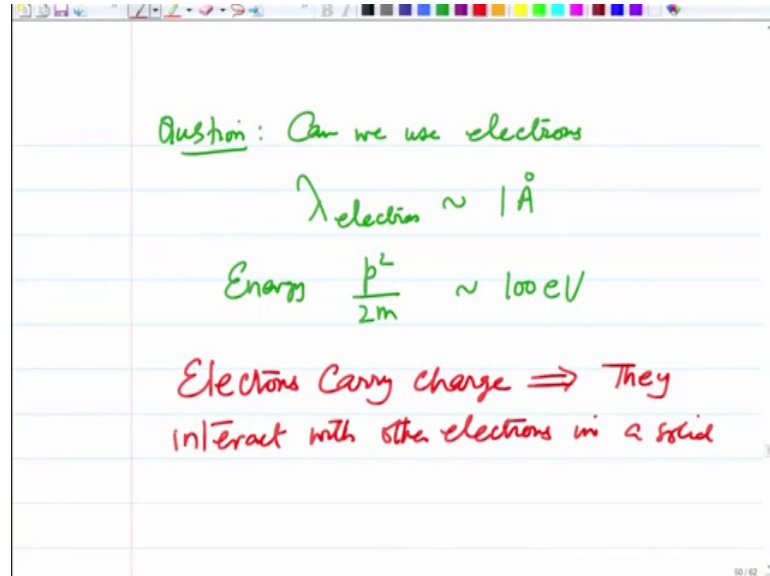 Qustion : Can we use electrons
λelectron ~ 1 Å
Energy p²/2m ~ 100 eV
Electrons Carry charge ⇒ They
interact with other electrons in a solid
50 / 62